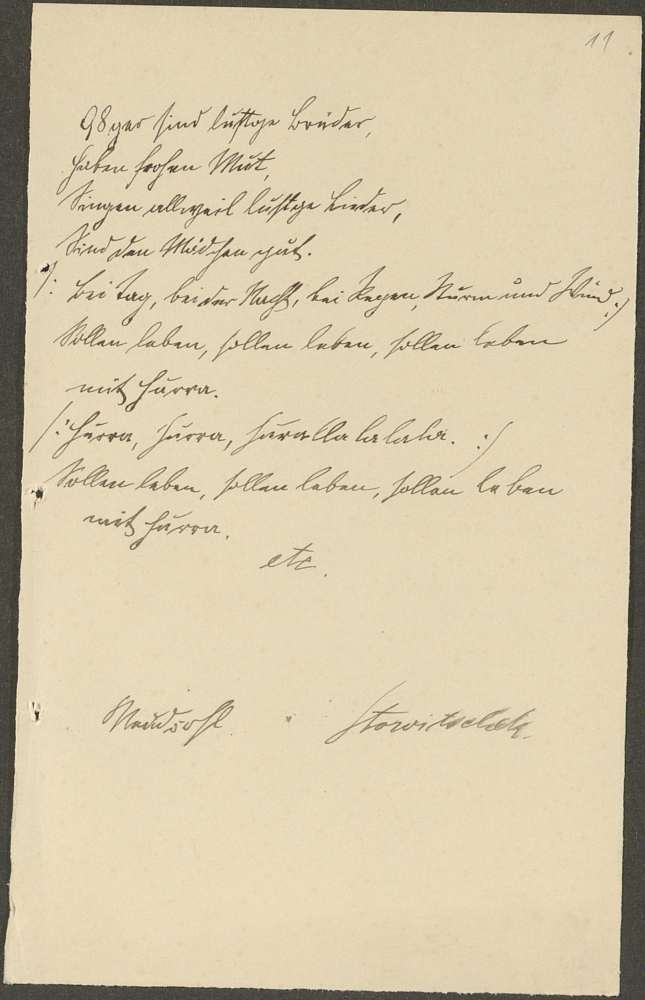 11
98ger sind lustge Brüder,
haben frohen Mut,
Singen allweil lustge Lieder,
Sind den Mädchen gut.
/: Bei Tag, bei der Nacht, bei Regen, Sturm und Wind :/
Sollen leben, sollen leben, sollen leben
mit Hurra.
/: Hurra, Hurra, Huralla la la la. :/
Sollen leben, sollen leben, sollen leben
mit Hurra.
etc.
Neudsohl